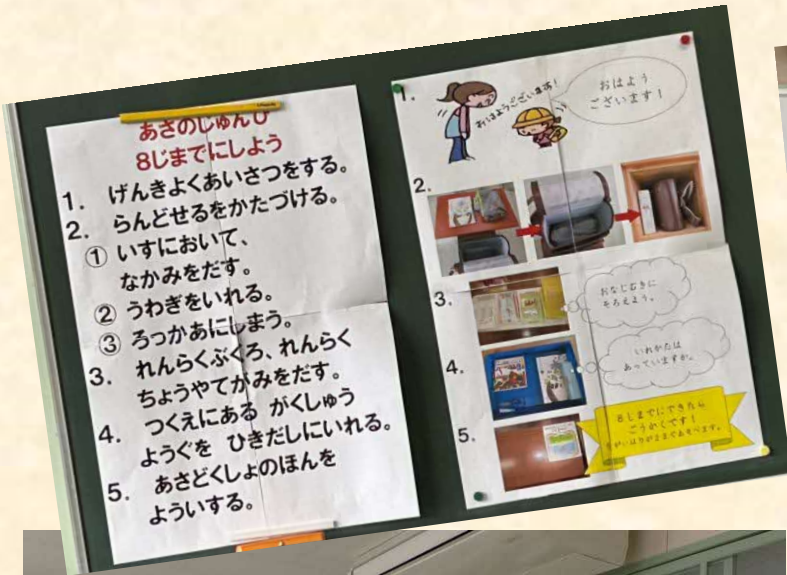 あさのじゅんび
8じまでにしよう
1. げんきよくあいさつをする。
2. らんどせるをかたづける。
① いすにおいて、
なかみをだす。
② うわぎをいれる。
③ ろっかあにしまう。
3. れんらくぶくろ、れんらく
ちょうやてがみをだす。
4. つくえにある がくしゅう
ようぐを ひきだしにいれる。
5. あさどくしょのほんを
よういする。
1.
おはようございます!
おはよう
ございます!
2.
3.
おなじむきに
そろえよう。
4.
いれかたは
あっていますか。
5.
8じまでにできたら
ごうかくです!